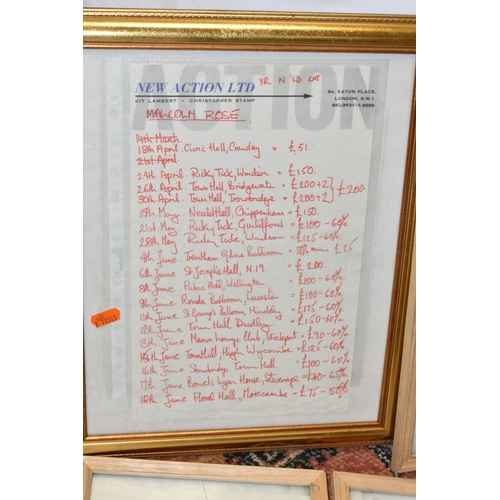 ACTION
NEW ACTION LTD
KIT LAMBERT · CHRISTOPHER STAMP
84, EATON PLACE,
LONDON, S.W.1.
BELGRAVIA
MALCOLM ROSE
14th March
18th April. Civic Hall, Crawley = £51.
21st April
24th April. Ricky Tick, Windsor = £150.
26th April. Town Hall, Bridgwater = £200+2 } £200.
30th April. Town Hall, Trowbridge = £200+2
15th May Neeld Hall, Chippenham = £150.
21st May Ricky Tick, Guildford = £100-60%
28th May Ricky Tick, Windsor = £125-60%
4th June Trentham Ballroom = 50% £25
6th June St Josephs Hall, N.19 = £200.
8th June Public Hall, Wallington = £100-60%
9th June Ronda Ballroom, Leicester = £100-60%
11th June St George's Ballroom, Hinckley = £175-60%
12th June Town Hall Dudley = £150-60%
13th June Manor Lounge Club, Stockport = £90-60%
14th June Town Hall, High Wycombe = £125-60%
16th June Stourbridge Town Hall £100-60%
17th June Bowes Lyon House, Stevenage = £140-65%
18th June Floral Hall, Morecambe = £75-50%